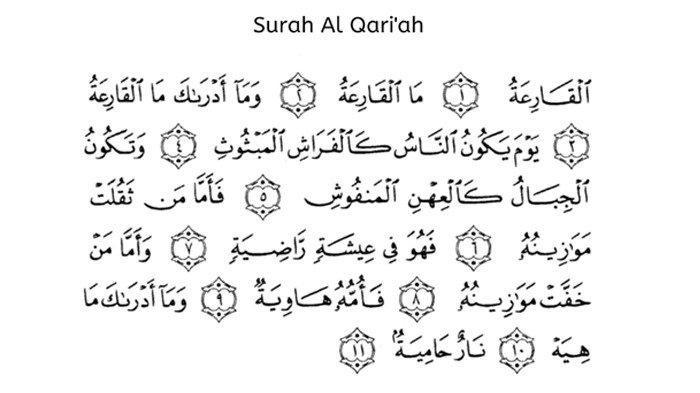 Surah Al Qari'ah
ٱلۡقَارِعَةُ ١ مَا ٱلۡقَارِعَةُ ٢ وَمَآ أَدۡرَىٰكَ مَا ٱلۡقَارِعَةُ
٣ يَوۡمَ يَكُونُ ٱلنَّاسُ كَٱلۡفَرَاشِ ٱلۡمَبۡثُوثِ ٤ وَتَكُونُ
ٱلۡجِبَالُ كَٱلۡعِهۡنِ ٱلۡمَنفُوشِ ٥ فَأَمَّا مَن ثَقُلَتۡ
مَوَٰزِينُهُۥ ٦ فَهُوَ فِي عِيشَةٖ رَّاضِيَةٖ ٧ وَأَمَّا مَنۡ
خَفَّتۡ مَوَٰزِينُهُۥ ٨ فَأُمُّهُۥ هَاوِيَةٞ ٩ وَمَآ أَدۡرَىٰكَ مَا
هِيَهۡ ١٠ نَارٌ حَامِيَةُۢ ١١